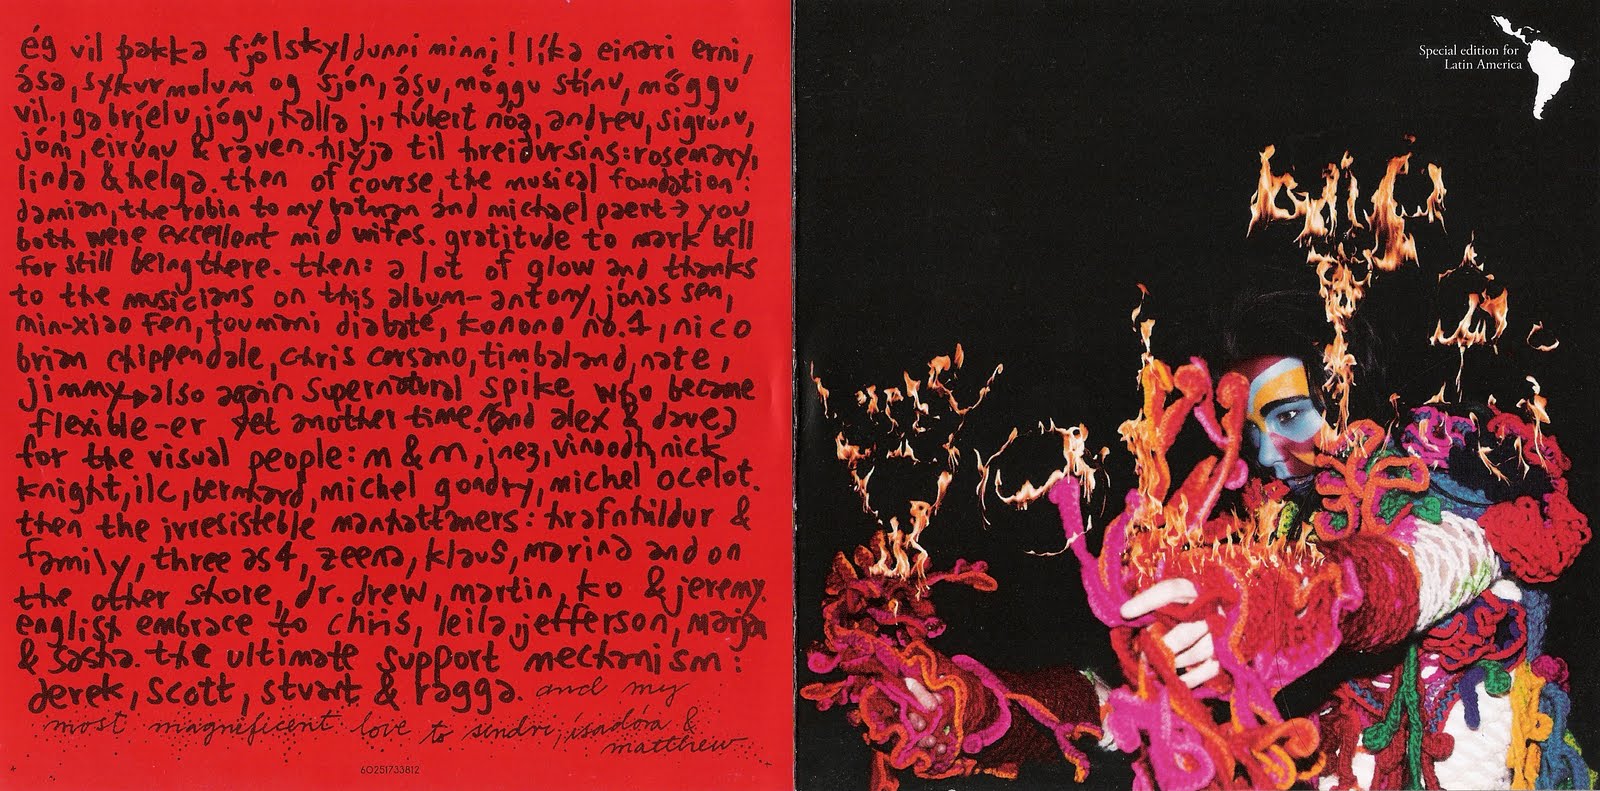 ég vil þakka fjölskyldunni minni! líka einari erni,
ása, sykurmolum og sjón, ásu, möggu stínu, möggu
vil., gabríelu, jógu, halla j., húbert nóa, andreu, sigrúnu,
jóni, eirúnu & raven. hlýja til hreidursins: rosemary,
linda & helga. then of course, the musical foundation:
damian, the robin to my batman and michael paert → you
both were excellent mid wifes. gratitude to mark bell
for still being there. then: a lot of glow and thanks
to the musicians on this album - antony, jónas sen,
min-xiao fen, toumani diabaté, konono no.1, nico
brian chippendale, chris corsano, timbaland, nate,
jimmy → also again supernatural spike who became
flexible-er yet another time! (and alex & dave)
for the visual people: m & m, inez, vinoodh, nick
knight, ilc, bernhard, michel gondry, michel ocelot.
then the irresisteble manhattamers: hrafnhildur &
family, three as 4, zeena, klaus, marina and on
the other shore, dr. drew, martin, ko & jeremy.
english embrace to chris, leila, jefferson,
& sasha. the ultimate support mechanism:
derek, scott, stuart & ragga. and my
most magneficent love to sindri, ísadóra &
matthew
60251733812
Special edition for
Latin America